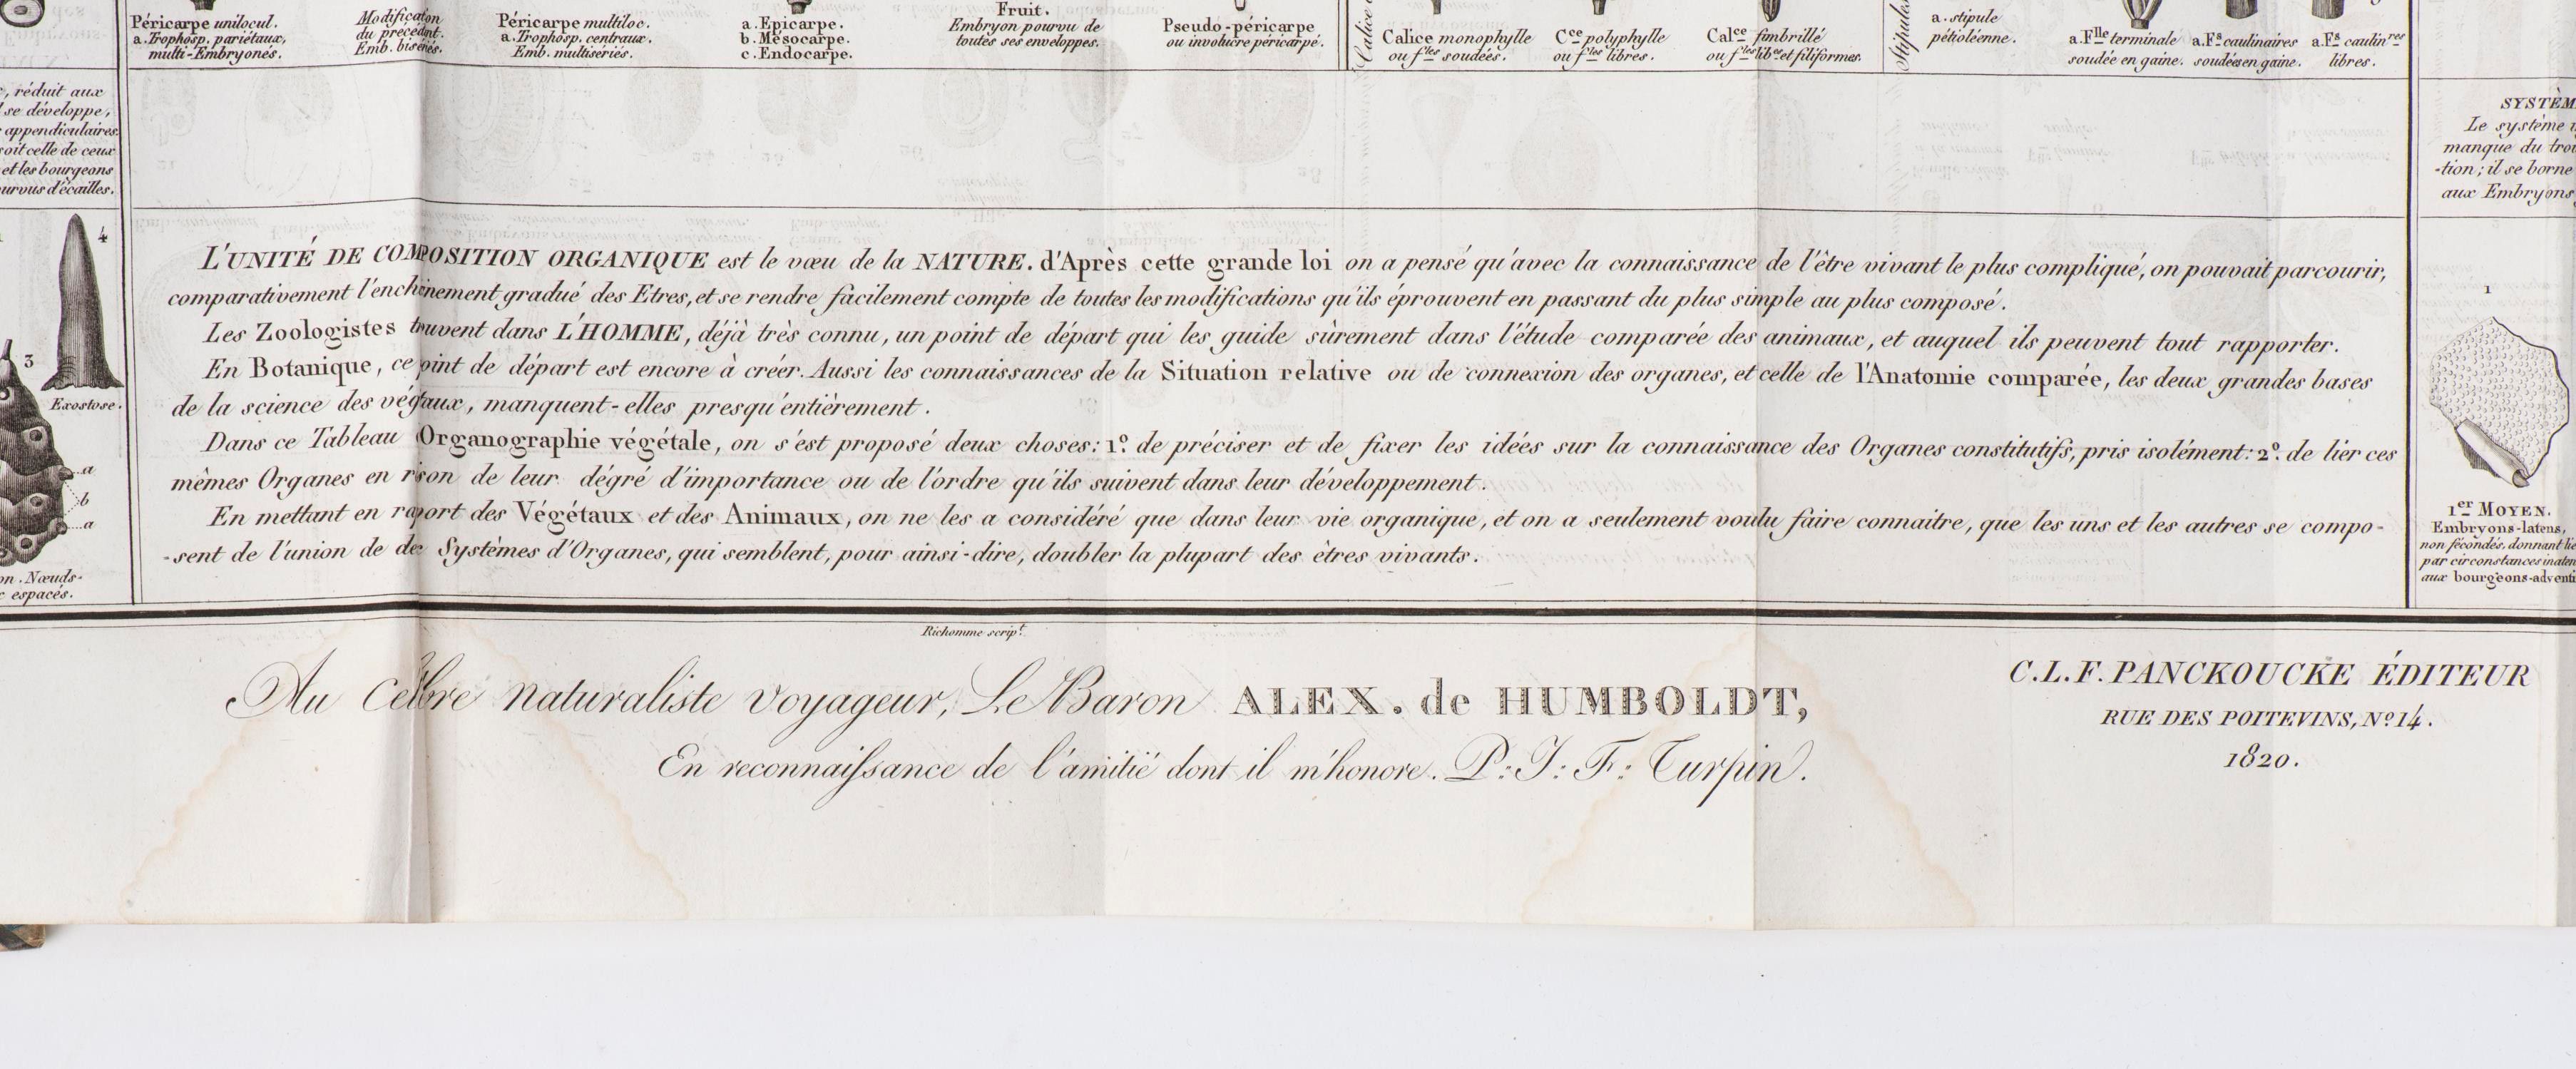 Péricarpe unilocul.
a. Trophosp. pariétaux,
multi-Embryonés.
Modificaton
du précédnt.
Emb. bisériés.
Péricarpe multiloc.
a. Trophosp. centraux.
Emb. multisériés.
a. Epicarpe.
b. Mésocarpe.
c. Endocarpe.
Fruit.
Embryon pourvu de
toutes ses enveloppes.
Pseudo-péricarpe
ou involucre péricarpé.
Calice
Calice monophylle
ou fles soudées.
Cce polyphylle
ou fles libres.
Calce fimbrillé
ou fles libes et filiformes.
Stipules
a. stipule
pétioléenne.
a. Flle terminale
soudée en gaine.
a. Fs caulinaires
soudées en gaine.
a. Fs caulinres
libres.
, réduit aux
se développe,
appendiculaires.
soit celle de ceux
et les bourgeons
d'écailles.
4
3
Exostose.
a
b
a
Nœuds-
espacés.
L'UNITÉ DE COMPOSITION ORGANIQUE est le vœu de la NATURE. d'Après cette grande loi on a pensé qu'avec la connaissance de l'être vivant le plus compliqué, on pouvait parcourir,
comparativement l'enchnement gradué des Etres, et se rendre facilement compte de toutes les modifications qu'ils éprouvent en passant du plus simple au plus composé.
Les Zoologistes truvent dans L'HOMME, déjà très connu, un point de départ qui les guide sûrement dans l'étude comparée des animaux, et auquel ils peuvent tout rapporter.
En Botanique, ce pint de départ est encore à créer. Aussi les connaissances de la Situation relative ou de connexion des organes, et celle de l'Anatomie comparée, les deux grandes bases
de la science des végtaux, manquent-elles presqu'entièrement.
Dans ce Tableau Organographie végétale, on s'est proposé deux choses: 1º. de préciser et de fixer les idées sur la connaissance des Organes constitutifs, pris isolément: 2º. de lier ces
mêmes Organes en rison de leur dégré d'importance ou de l'ordre qu'ils suivent dans leur développement.
En mettant en raport des Végétaux et des Animaux, on ne les a considéré que dans leur vie organique, et on a seulement voulu faire connaitre, que les uns et les autres se compo-
-sent de l'union de de Systèmes d'Organes, qui semblent, pour ainsi-dire, doubler la plupart des êtres vivants.
SYSTÈM
Le système
manque du troi
-tion; il se borne
aux Embryons
1
1er MOYEN.
Embryons-latens,
non fécondés, donnant lie
par circonstances inaten
aux bourgeons-adventi
Richomme script.
Au Célbre naturaliste voyageur, Le Baron ALEX. de HUMBOLDT,
En reconnaissance de l'amitié dont il m'honore. P: J: F: Turpin.
C.L.F. PANCKOUCKE ÉDITEUR
RUE DES POITEVINS, Nº 14.
1820.